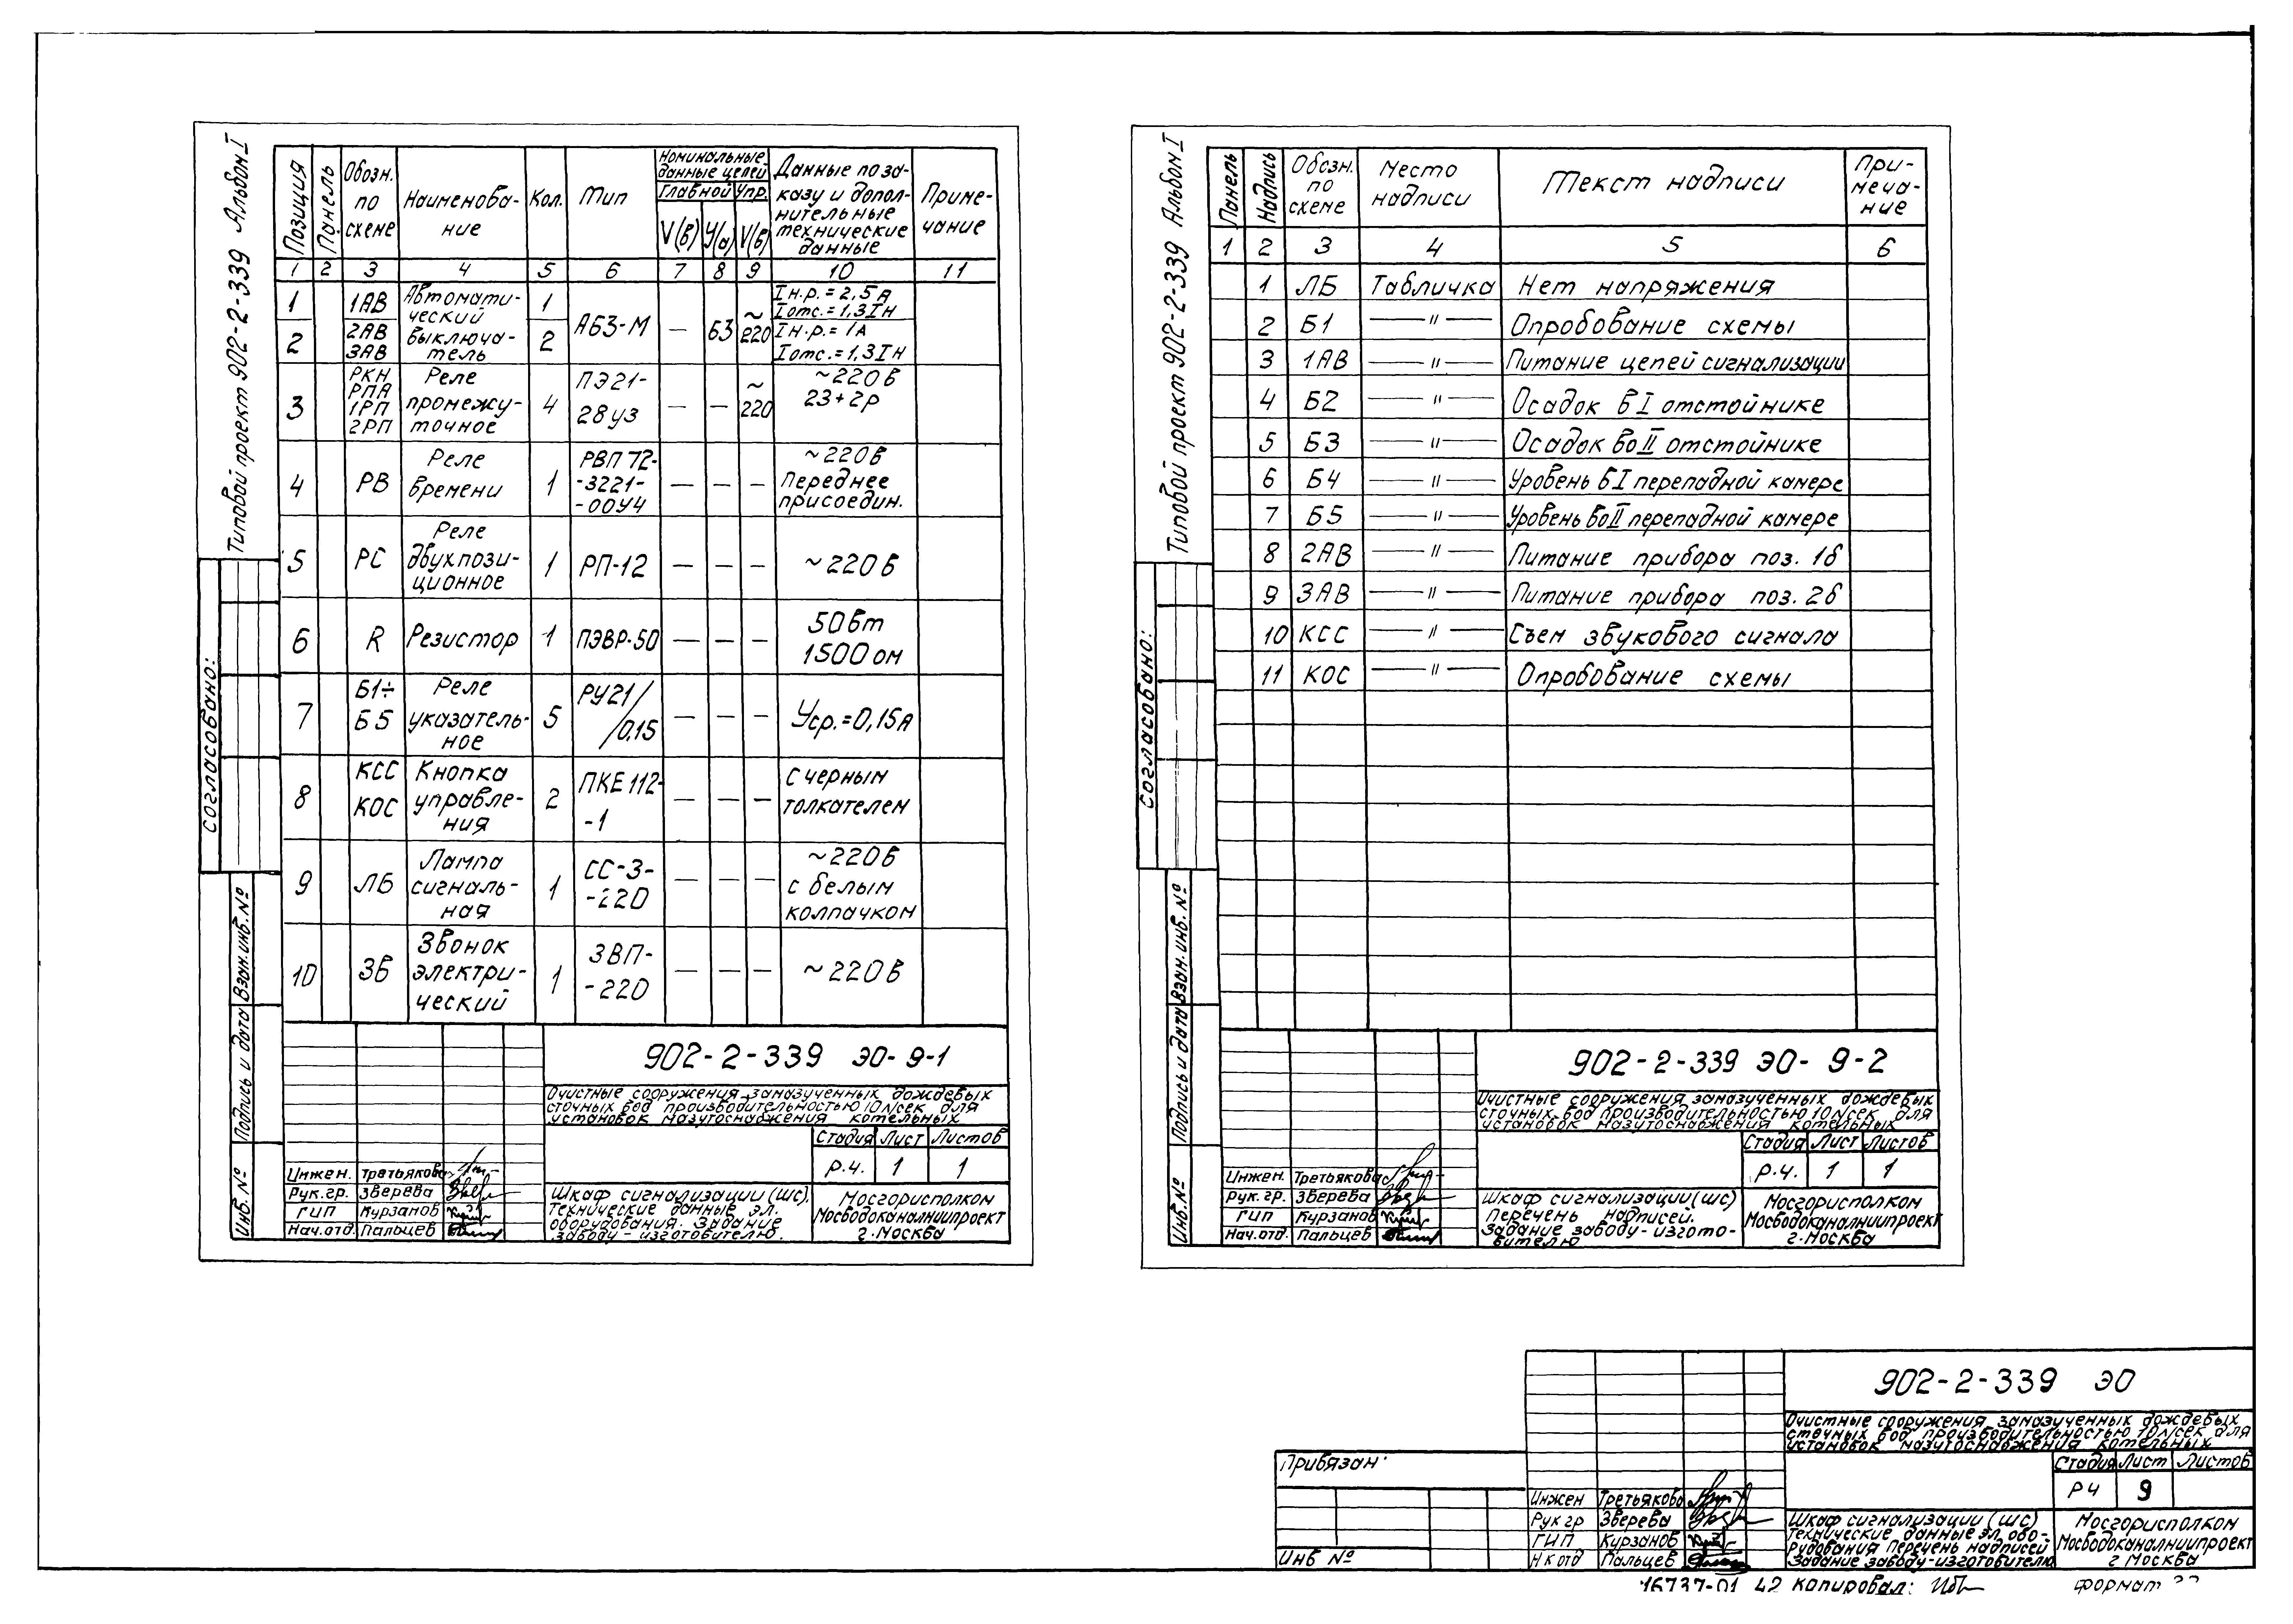 Типовой проект 902-2-339 Альбом I
Согласовано:
Взам.инв.№
Подпись и дата
Инв.№
Позиция
Панель
Обозн. по схеме
Наименова-
ние
Кол.
Тип
Номинальные данные цепей
Главной Упр.
V(в) У(а) V(в)
Данные по за-
казу и допол-
нительные
технические
данные
Приме-
чание
1 2 3 4 5 6 7 8 9 10 11
1 1АВ Автомати-
ческий
выключа-
тель 1 А63-М — 63 ~220 Iн.р.=2,5А
Iотс.=1,3Iн
2 2АВ
3АВ 2 Iн.р.=1А
Iотс.=1,3Iн
3 РКН
РПА
1РП
2РП Реле
промежу-
точное 4 ПЭ21-
28У3 — — ~220 ~220в
2з+2р
4 РВ Реле
времени 1 РВП 72-
-3221-
-00У4 — — — ~220в
Переднее
присоедин.
5 РС Реле
двухпози-
ционное 1 РП-12 — — — ~220в
6 R Резистор 1 ПЭВР-50 — — — 50вт
1500 ом
7 Б1÷
Б5 Реле
указатель-
ное 5 РУ21/
/0,15 — — — Уср.=0,15А
8 КСС
КОС Кнопка
управле-
ния 2 ПКЕ 112-
-1 — — — С черным
толкателем
9 ЛБ Лампа
сигналь-
ная 1 СС-3-
-220 — — — ~220в
с белым
колпачком
10 ЗВ Звонок
электри-
ческий 1 ЗВП-
-220 — — — ~220в
902-2-339 ЭО-9-1
Очистные сооружения замазученных дождевых
сточных вод производительностью 10 л/сек для
установок мазутоснабжения котельных
Стадия Лист Листов
Р.Ч. 1 1
Инжен. Третьякова
Рук.гр. Зверева
ГИП Курзанов
Нач.отд. Пальцев
Шкаф сигнализации (ШС).
Технические данные эл.
оборудования. Задание
заводу-изготовителю.
Мосгорисполком
Мосводоканалниипроект
г.Москва
Типовой проект 902-2-339 Альбом I
Согласовано:
Взам.инв.№
Подпись и дата
Инв.№
Панель
Надпись
Обозн.
по
схеме
Место
надписи
Текст надписи
При-
меча-
ние
1 2 3 4 5 6
1 ЛБ Табличка Нет напряжения
2 Б1 —〃— Опробование схемы
3 1АВ —〃— Питание цепей сигнализации
4 Б2 —〃— Осадок в I отстойнике
5 Б3 —〃— Осадок во II отстойнике
6 Б4 —〃— Уровень в I перепадной камере
7 Б5 —〃— Уровень во II перепадной камере
8 2АВ —〃— Питание прибора поз. 1б
9 3АВ —〃— Питание прибора поз. 2б
10 КСС —〃— Съем звукового сигнала
11 КОС —〃— Опробование схемы
902-2-339 ЭО-9-2
Очистные сооружения замазученных дождевых
сточных вод производительностью 10 л/сек для
установок мазутоснабжения котельных
Стадия Лист Листов
Р.Ч. 1 1
Инжен. Третьякова
Рук.гр. Зверева
ГИП Курзанов
Нач.отд. Пальцев
Шкаф сигнализации (ШС)
Перечень надписей.
Задание заводу-изгото-
вителю
Мосгорисполком
Мосводоканалниипроект
г.Москва
902-2-339 ЭО
Очистные сооружения замазученных дождевых
сточных вод производительностью 10 л/сек для
установок мазутоснабжения котельных
Привязан:
Инв №
Стадия Лист Листов
РЧ 9
Инжен Третьякова
Рук гр Зверева
ГИП Курзанов
Н к отд Пальцев
Шкаф сигнализации (ШС)
Технические данные эл. обо-
рудования Перечень надписей
Задание заводу-изготовителю
Мосгорисполком
Мосводоканалниипроект
г Москва
16737-01 42 Копировал: формат